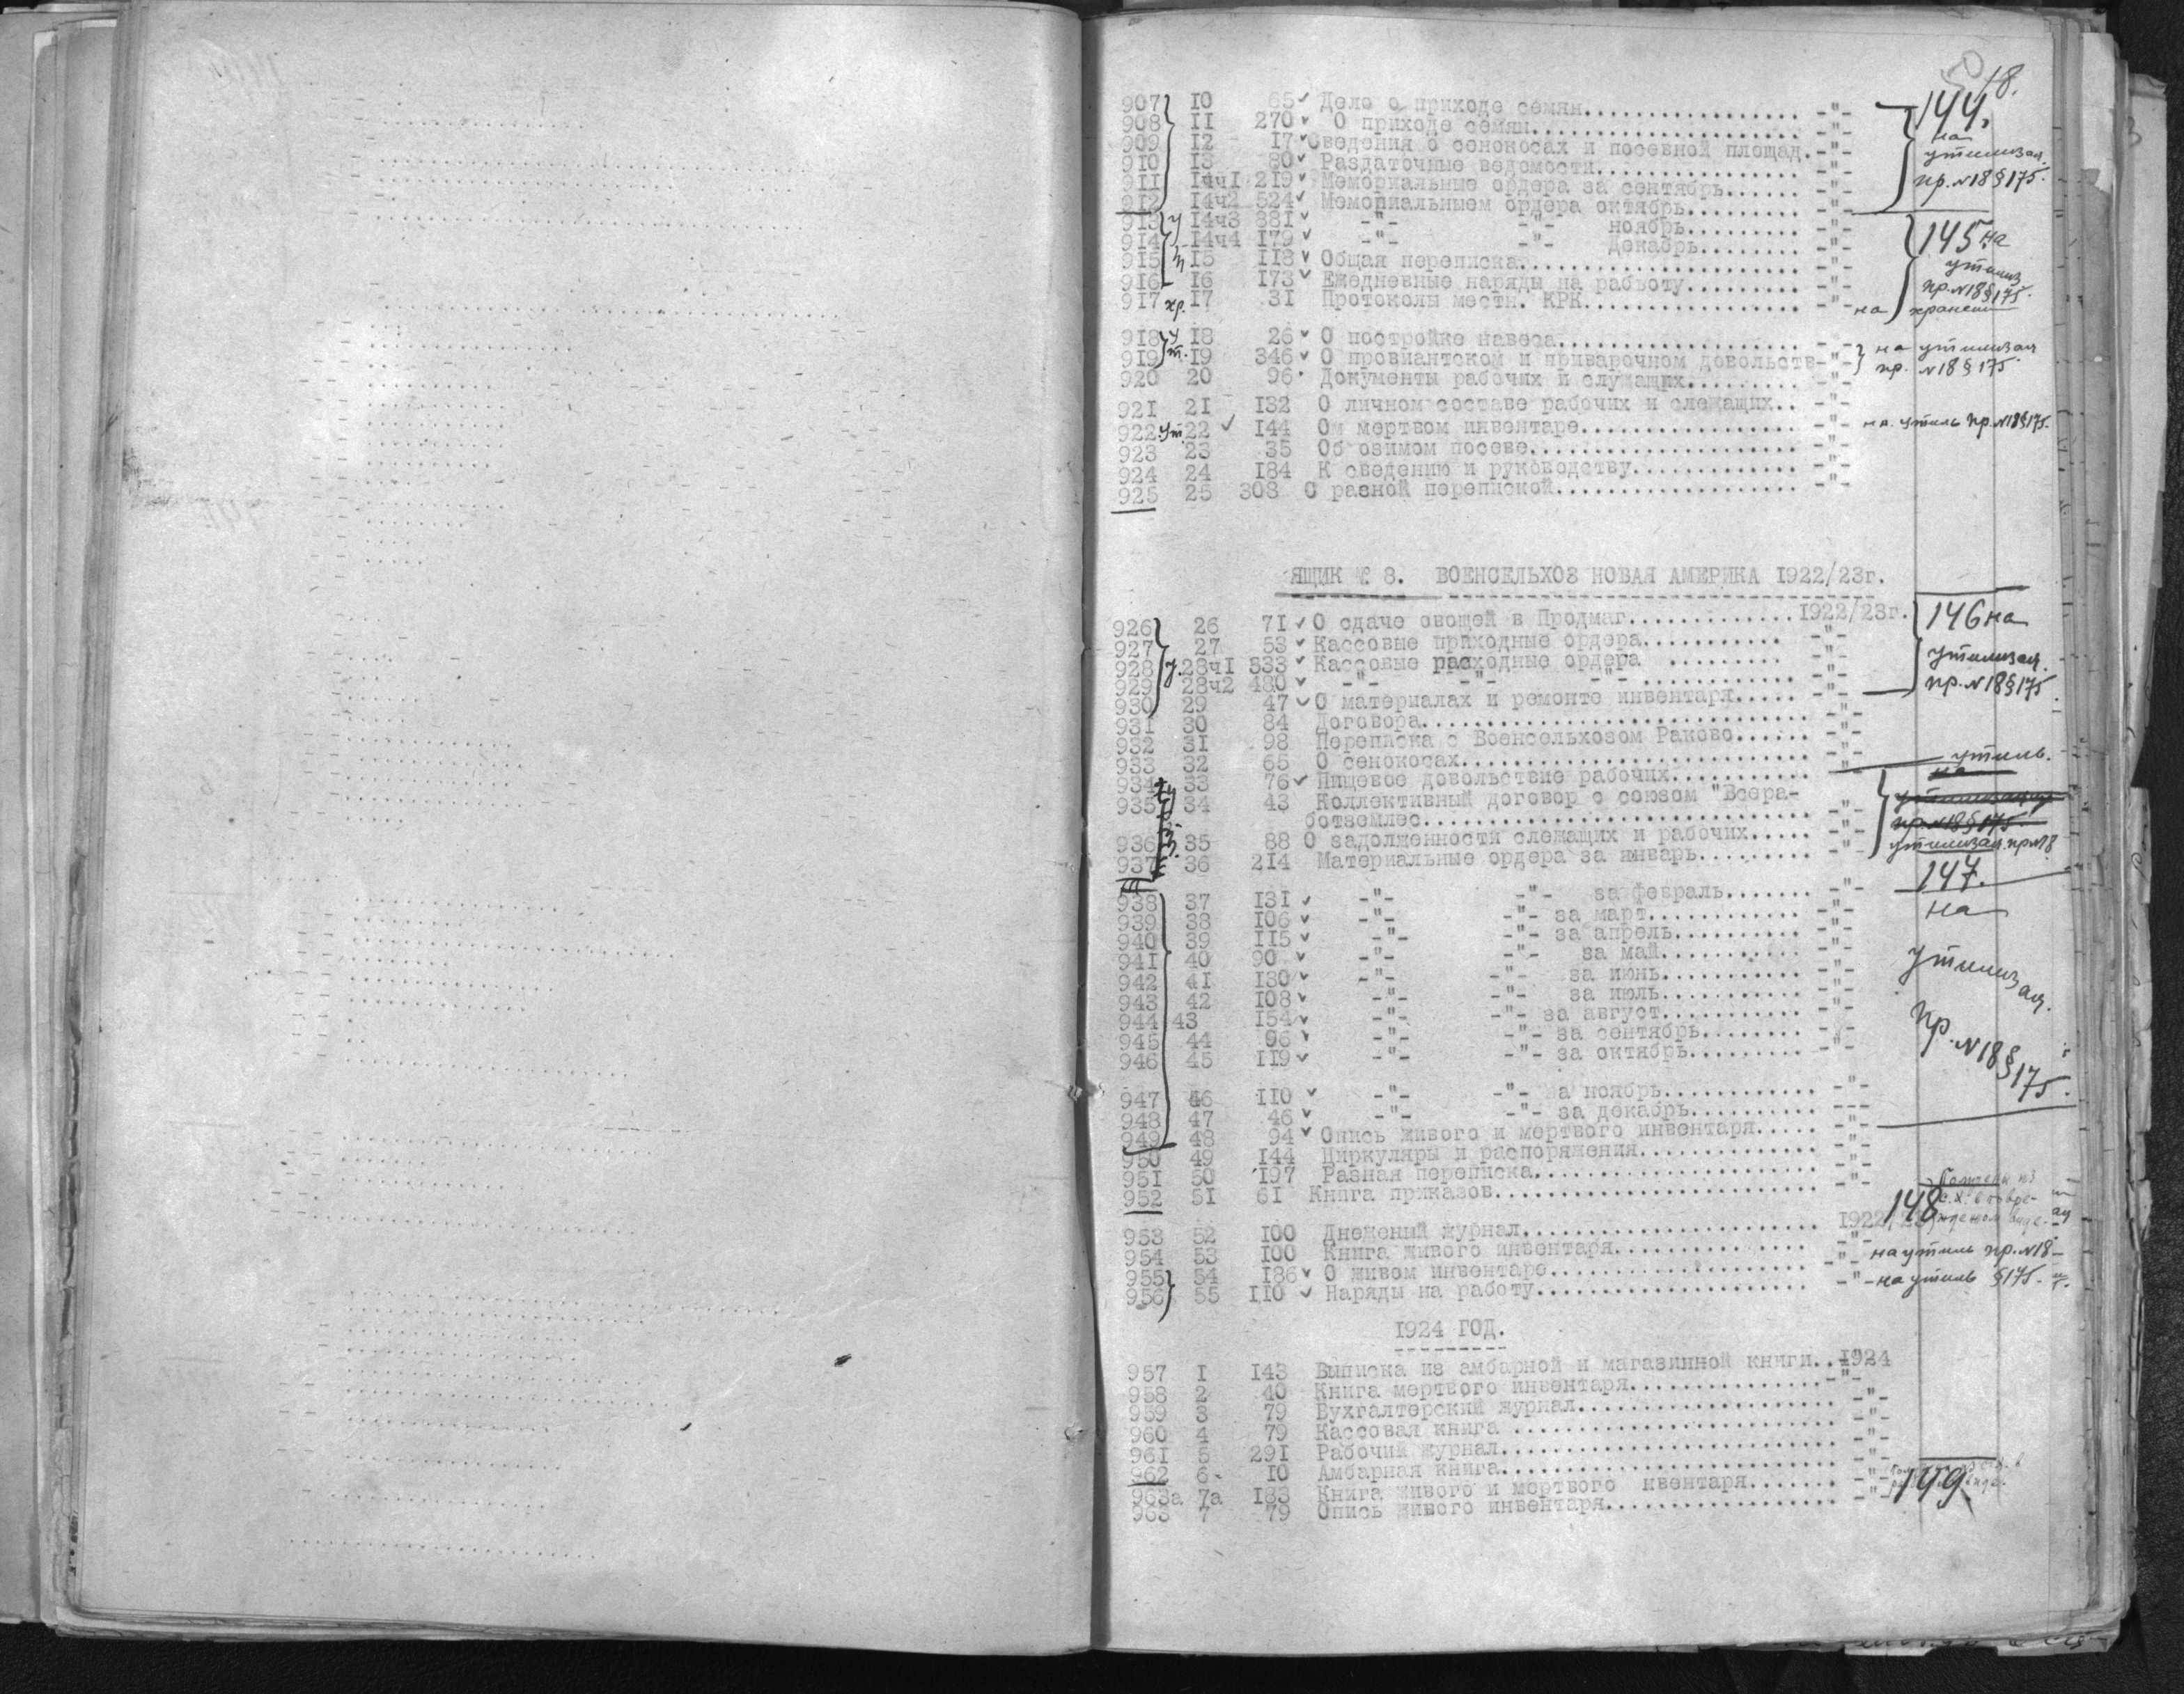 50 18.
907 10 65 Дело о приходе семян -"- 144.
908 11 270 О приходе семян -"- на
909 12 17 Сведения о сенокосах и посевной площад. -"- утилизац.
910 13 80 Раздаточные ведомости -"- пр. №18 §175.
911 14ч1 219 Мемориальные ордера за сентябрь -"-
912 14ч2 524 Мемориальныем ордера октябрь -"-
913 у 14ч3 381 -"- -"- ноябрь -"- 145 на
914 14ч4 179 -"- -"- декабрь -"-
915 15 118 Общая переписка -"- утилиз
916 16 173 Ежедневные наряды на рабьоту -"- пр. №18 §175.
917 хр. 17 31 Протоколы местн. КРК -"- на хранении
918 у 18 26 О постройке навеса -"- на утилизац
919 т. 19 346 О провиантском и приварочном довольств -"- пр. №18 §175.
920 20 96 Документы рабочих и служащих -"-
921 21 132 О личном составе рабочих и слежащих -"-
922 ут. 22 144 Ом мертвом инвентаре -"- на утиль пр. №18 §175.
923 23 35 Об озимом посеве -"-
924 24 184 К сведению и руководству -"-
925 25 308 О разной перепиской -"-
ЯЩИК № 8. ВОЕНСЕЛЬХОЗ НОВАЯ АМЕРИКА 1922/23г.
926 26 71 О сдаче овощей в Продмаг 1922/23г. 146 на
927 27 53 Кассовые приходные ордера -"-
928 у. 28ч1 533 Кассовые расходные ордера -"- утилизац.
929 28ч2 480 -"- -"- -"- -"- пр. №18 §175
930 29 47 О материалах и ремонте инвентаря -"-
931 30 84 Договора -"-
932 31 98 Переписка с Военсельхозом Раково -"-
933 32 65 О сенокосах -"- утиль.
934 33 76 Пищевое довольствие рабочих -"- на
935 34 43 Коллективный договор с союзом "Всера- утилизацию
ботземлес -"- пр. №18 §175.
936 35 88 О задолженности слежащих и рабочих -"- утилизац. пр №18
937 36 214 Материальные ордера за январь -"- 147.
938 37 131 -"- -"- за февраль -"- на
939 38 106 -"- -"- за март -"-
940 39 115 -"- -"- за апрель -"-
941 40 90 -"- -"- за май -"- утилизац.
942 41 130 -"- -"- за июнь -"-
943 42 108 -"- -"- за июль -"-
944 43 154 -"- -"- за август -"- пр. №18 §175.
945 44 96 -"- -"- за сентябрь -"-
946 45 119 -"- -"- за октябрь -"-
947 46 110 -"- -"- а ноябрь -"-
948 47 46 -"- -"- за декабрь ---
949 48 94 Опись живого и мертвого инвентаря -"-
950 49 144 Циркуляры и распоряжения -"-
951 50 197 Разная переписка -"-
952 51 61 Книга приказов -"- 148
953 52 100 Днеженый журнал 1922
954 53 100 Книга живого инвентаря -"- на утиль пр. №18
955 54 186 О живом инвентаре -"-
956 55 110 Наряды на работу -"- на утиль §175.
1924 ГОД.
957 1 143 Выписка из амбарной и магазинной книги 1924
958 2 40 Книга мертвого инвентаря -"-
959 3 79 Бухгалтерский журнал -"-
960 4 79 Кассовая книга -"-
961 5 291 Рабочий журнал -"-
962 6 10 Амбарная книга -"-
963а 7а 133 Книга живого и мертвого нвентаря -"- 149
963 7 79 Опись живого инвентаря -"-